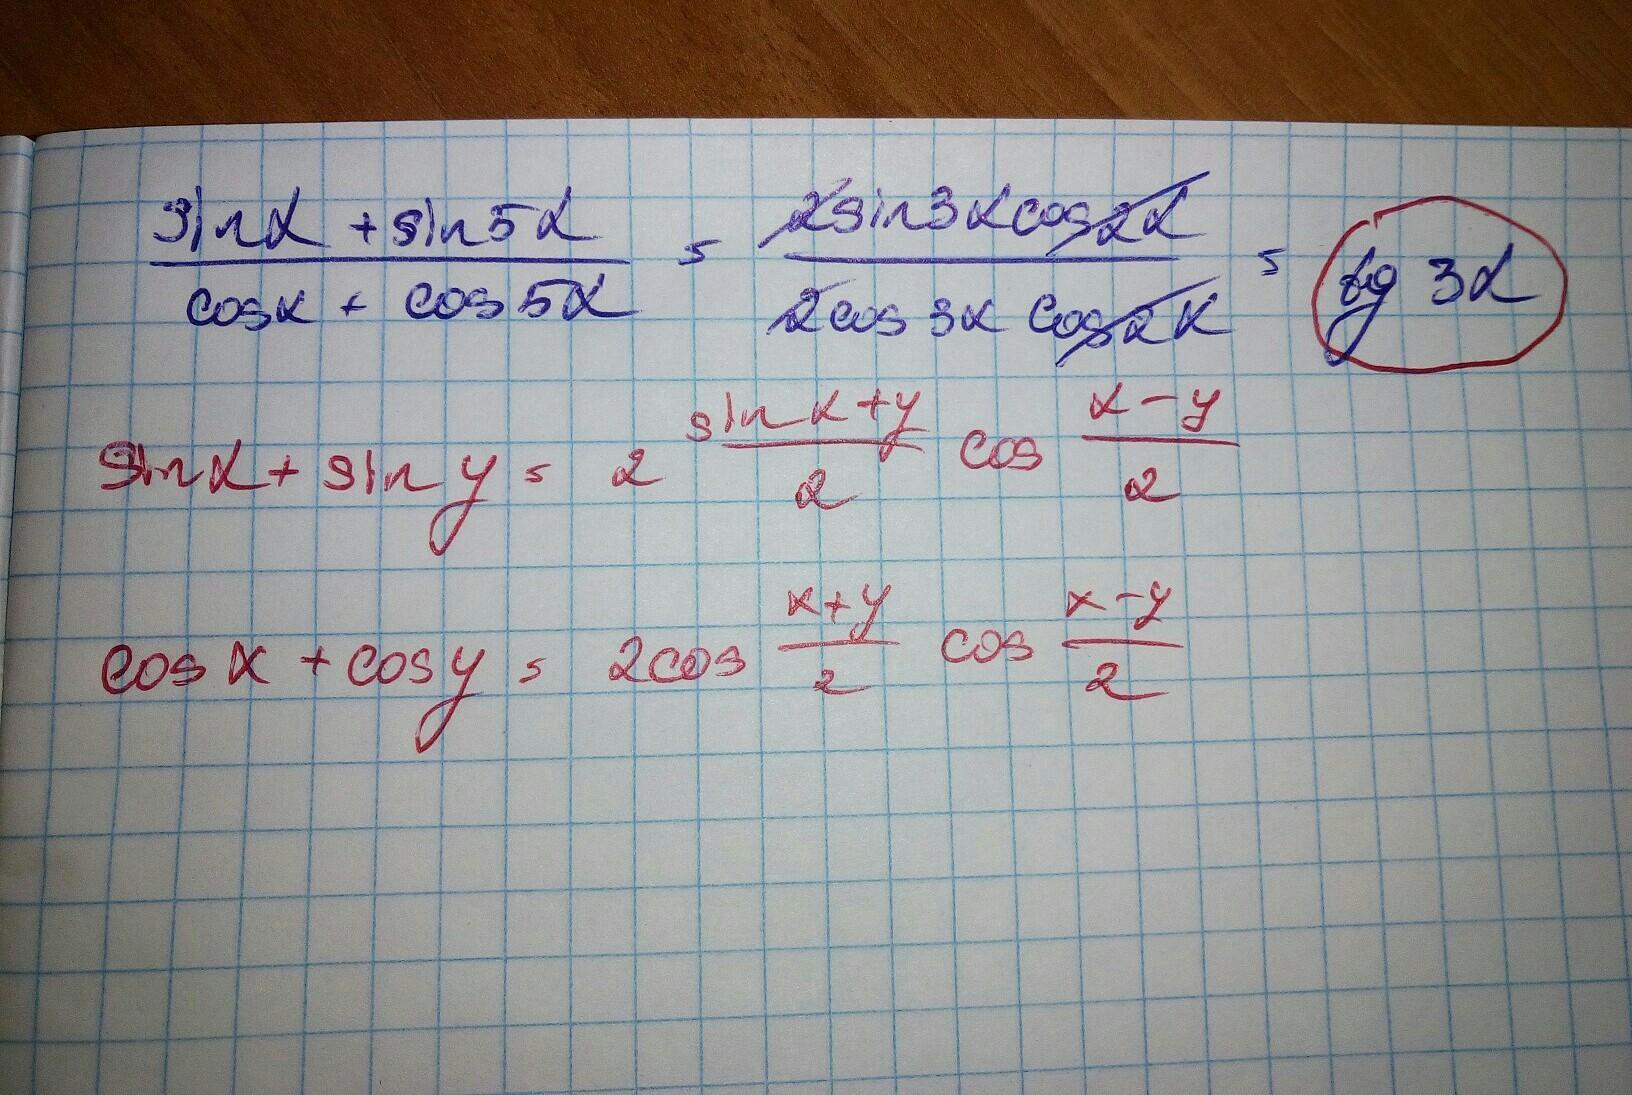 (sinα + sin5α)/(cosα + cos5α) = (2sin3αcos2α)/(2cos3αcos2α) = tg 3α
sinx + siny = 2 sin (x+y)/2 cos (x-y)/2
cosx + cosy = 2cos (x+y)/2 cos (x-y)/2